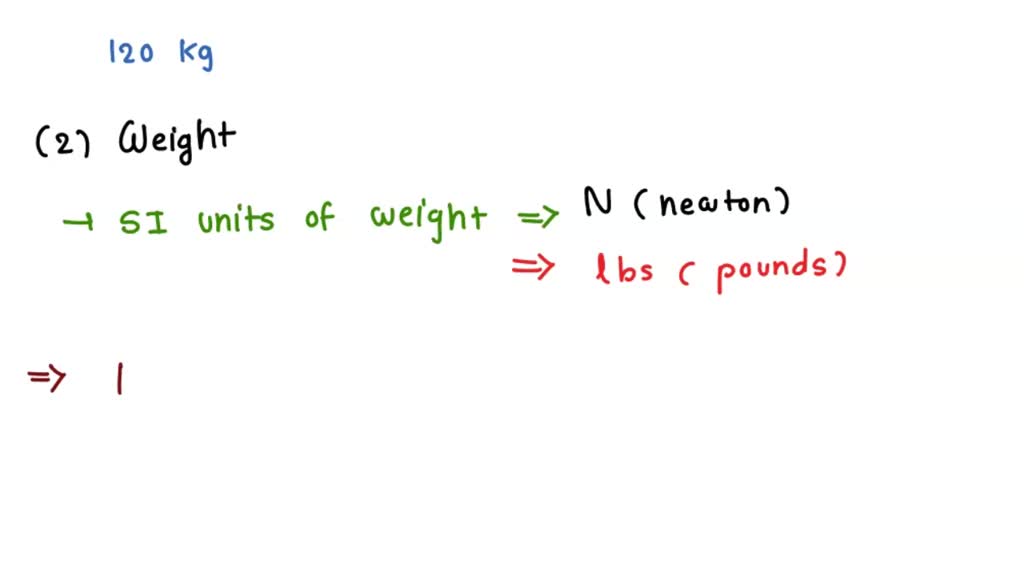 120 kg
(2) Weight
→ SI units of weight ⇒ N (newton)
⇒ lbs (pounds)
⇒ |